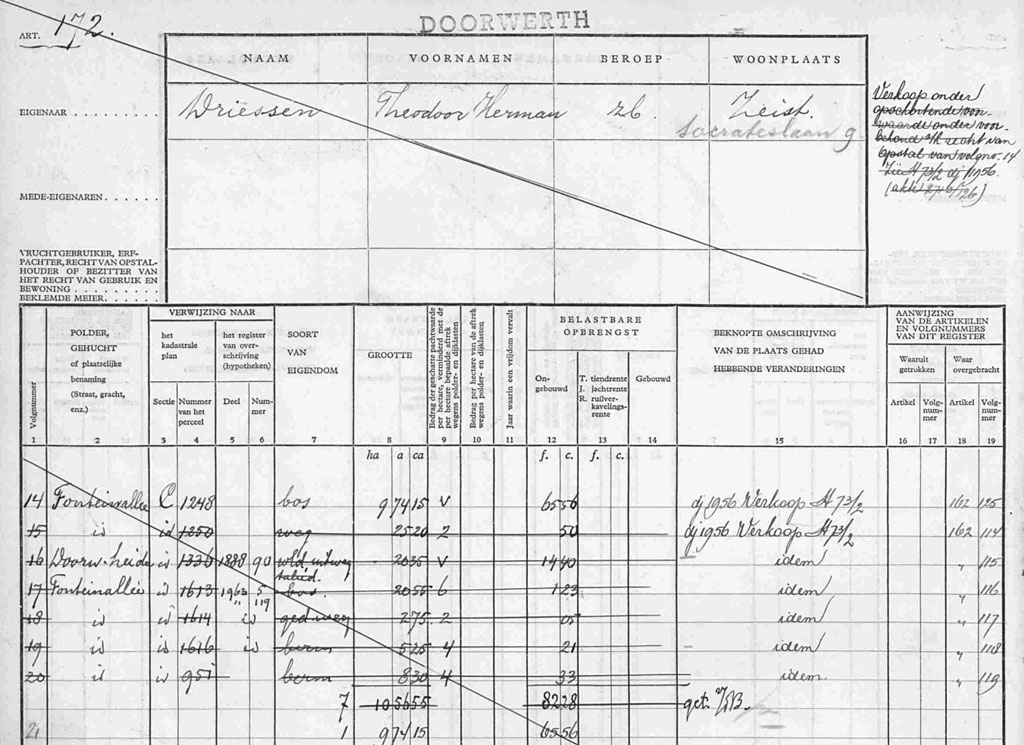 DOORWERTH
ART. 172.
NAAM VOORNAMEN BEROEP WOONPLAATS
EIGENAAR Driessen Theodoor Herman zb. Zeist.
Socrateslaan 9
Verkoop onder
opschortende voor-
waarde onder voor-
behoud v/h recht van
opstal van volgno. 14
Zie H 73/2 dj 1956.
MEDE-EIGENAREN
VRUCHTGEBRUIKER, ERF-
PACHTER, RECHT VAN OPSTAL-
HOUDER OF BEZITTER VAN
HET RECHT VAN GEBRUIK EN
BEWONING
BEKLEMDE MEIER
Volgnummer
POLDER,
GEHUCHT
of plaatselijke
benaming
(Straat, gracht,
enz.)
VERWIJZING NAAR
het
kadastrale
plan
het register
van over-
schrijving
(hypotheken)
Sectie Nummer
van het
perceel
Deel Num-
mer
SOORT
VAN
EIGENDOM
GROOTTE
Bedrag der geschatte pachtwaarde
per hectare, verminderd met de
per hectare bepaalde aftrek
wegens polder- en dijklasten
Bedrag per hectare van de aftrek
wegens polder- en dijklasten
Jaar waarin een vrijdom vervalt
BELASTBARE
OPBRENGST
On-
gebouwd
T. tiendrente
J. jachtrente
R. ruilver-
kavelings-
rente
Gebouwd
BEKNOPTE OMSCHRIJVING
VAN DE PLAATS GEHAD
HEBBENDE VERANDERINGEN
AANWIJZING
VAN DE ARTIKELEN
EN VOLGNUMMERS
VAN DIT REGISTER
Waaruit
getrokken
Waar
overgebracht
Artikel Volg-
num-
mer
Artikel Volg-
num-
mer
1 2 3 4 5 6 7 8 9 10 11 12 13 14 15 16 17 18 19
ha a ca f. c. f. c.
14 Fonteinallee C 1248 bos 9 74 15 V 65 56 dj 1956 Verkoop H 73/2 162 125
15 id id 1250 weg 25 20 2 50 dj 1956 Verkoop H 73/2 162 114
16 Doorw. heide id 1336 1888 90 20 35 V 14 40 idem „ 115
17 Fonteinallee id 1613 1962 5 bos. 20 55 6 1 23 idem „ 116
„ 119
18 id id 1614 id ged. weg 2 75 2 05 idem „ 117
19 id id 1616 id berm 5 25 4 21 idem „ 118
20 id id 951 berm 8 30 4 33 idem. „ 119
7 10 56 55 82 28
21 1 9 74 15 65 56